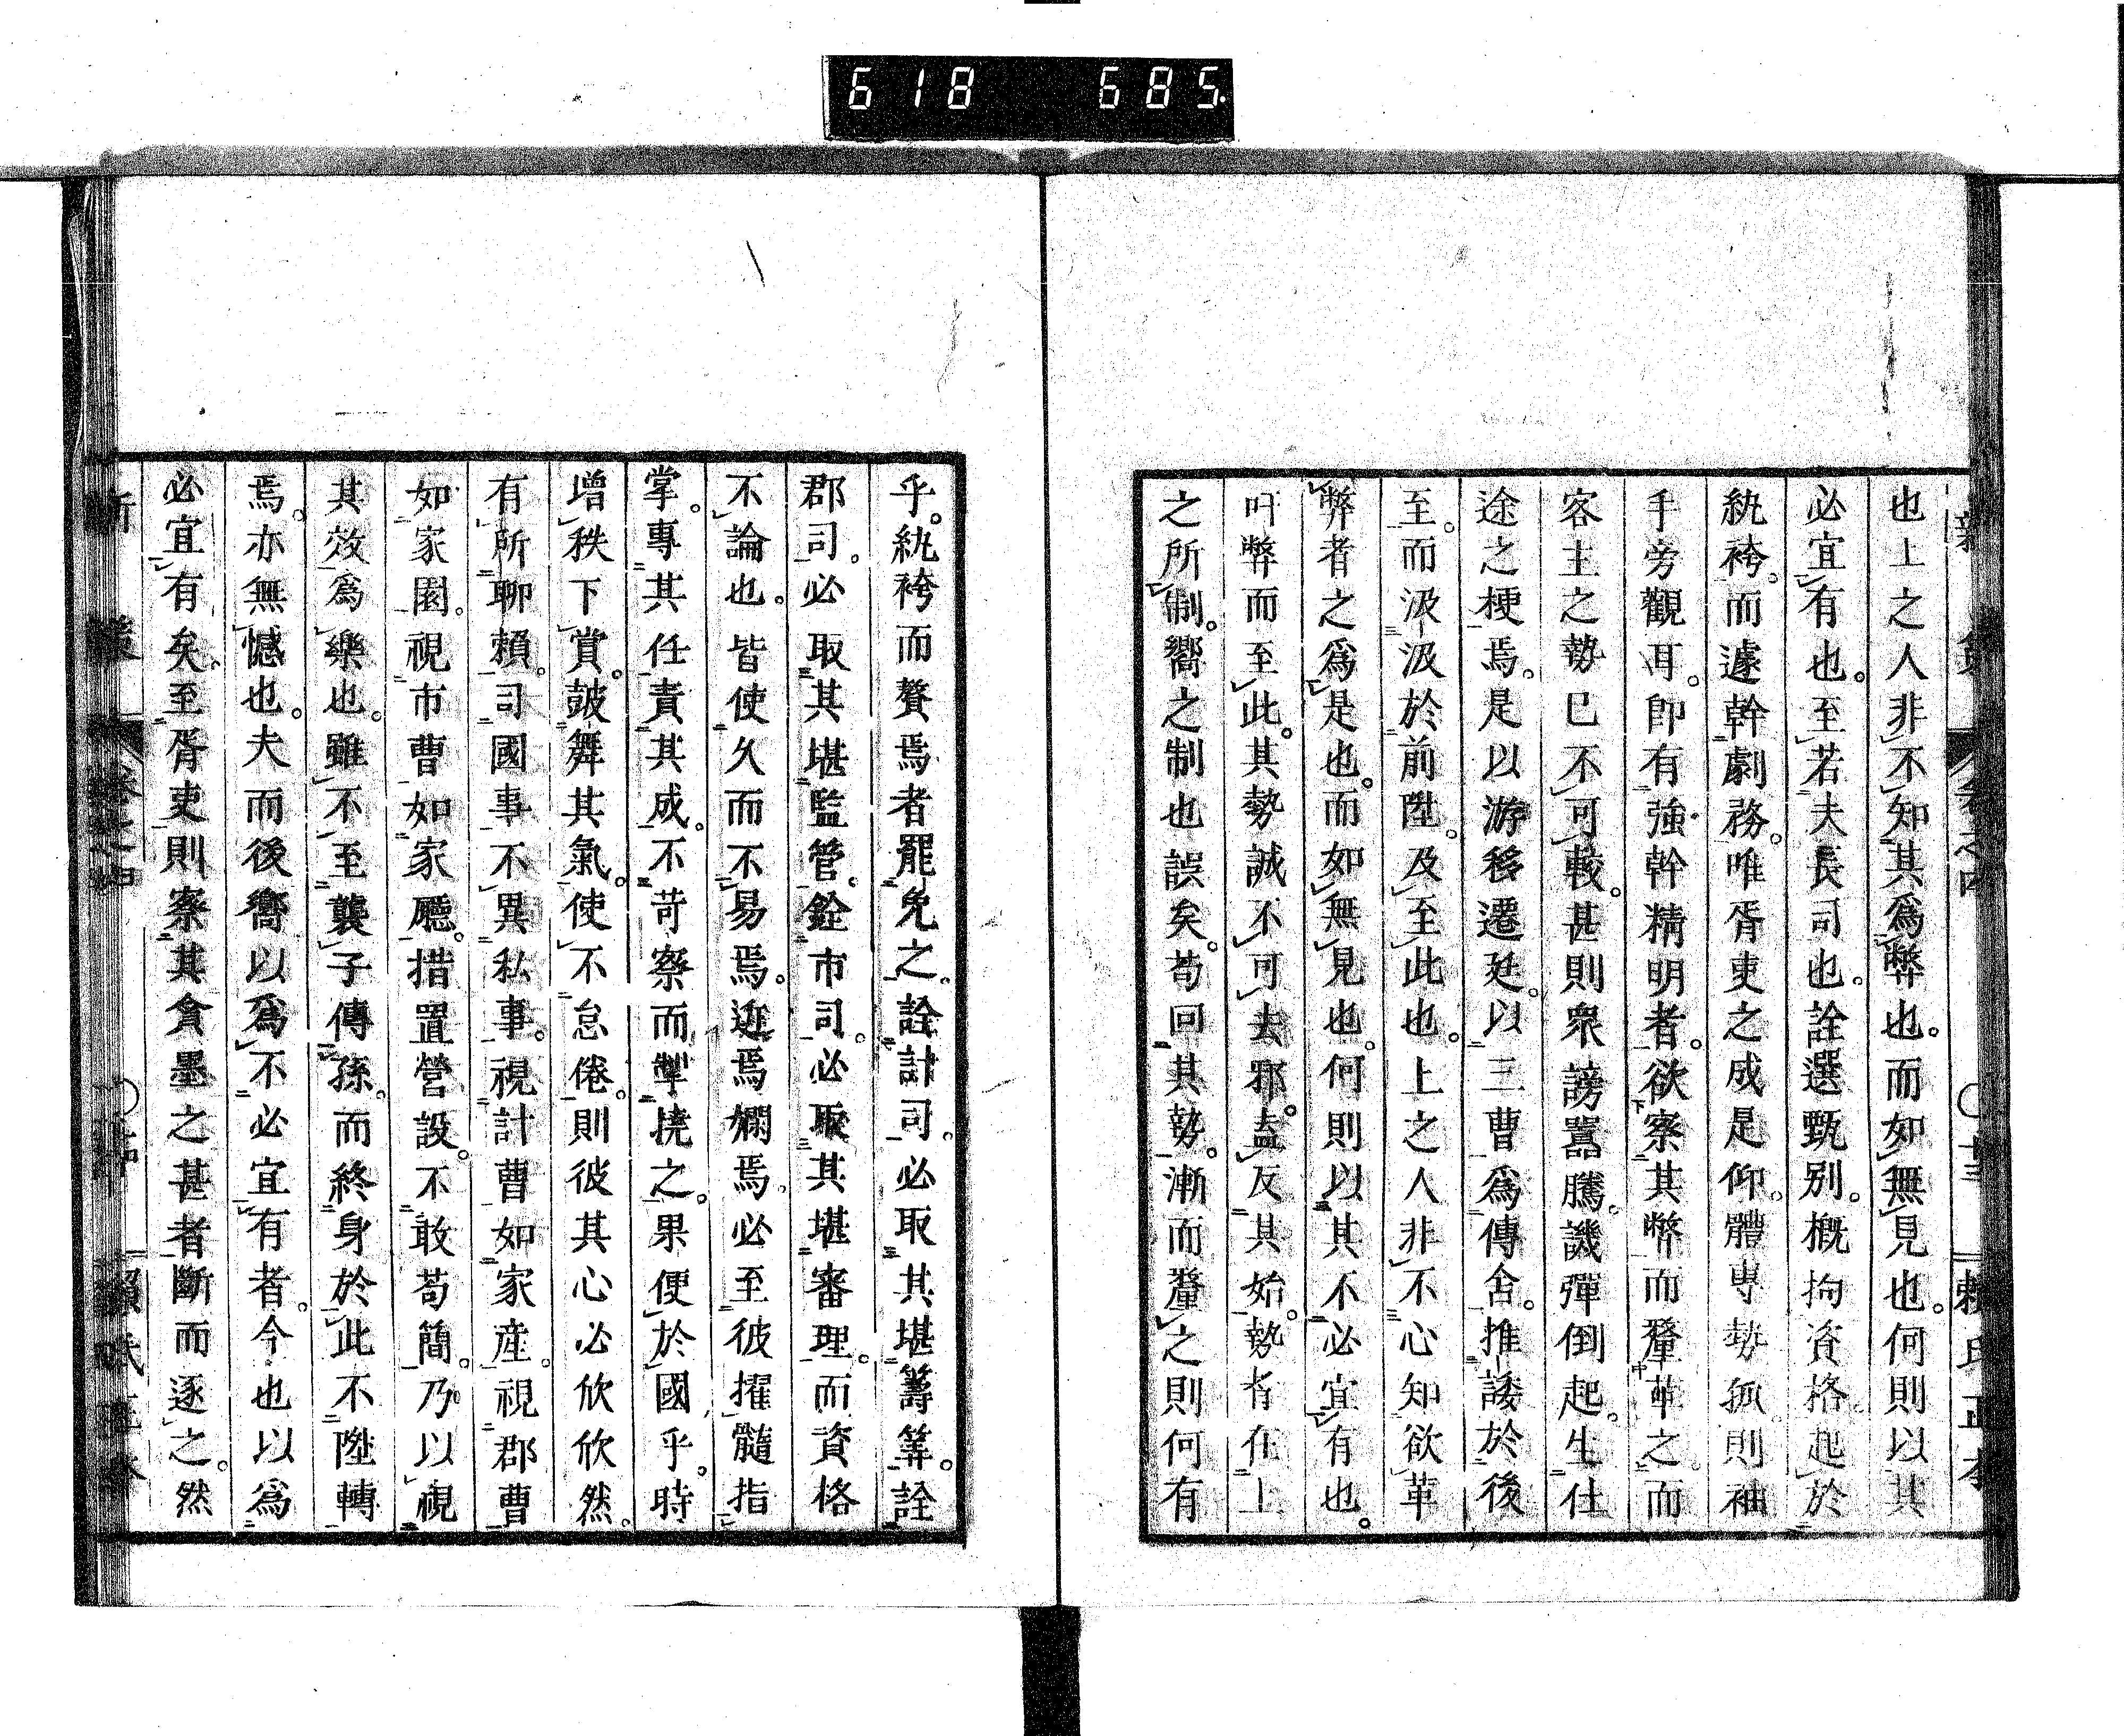 618 685.
也上之人非不知其爲弊也。而如無見也。何則以其
必宜有也。至若夫長司也。詮選甄別。概拘資格。起於
紈袴。而遽幹劇務。唯胥吏之成是仰。體専勢孤。則袖
手旁觀耳。即有強幹精明者。欲察其弊而釐革之。而
客主之勢已不可較。甚則衆謗囂騰。譏彈倒起。生仕
途之梗焉。是以游移遷延。以三曹爲傳舍。推諉於後
至。而汲汲於前陞。及至此也。上之人非不心知欲革
弊者之爲是也。而如無見也。何則以其不必宜有也。
吁弊而至此。其勢誠不可去邪。盍反其始。勢者在上
之所制。嚮之制也誤矣。苟回其勢。漸而釐之則何有
乎。紈袴而贅焉者罷免之。詮計司。必取其堪籌筭。詮
郡司。必取其堪監管。銓市司。必取其堪審理。而資格
不論也。皆使久而不易焉。延焉爛焉。必至彼擢髓指
掌。專其任責其成。不苛察而掣撓之。果便於國乎。時
增秩下賞。鼓舞其氣。使不怠倦。則彼其心必欣欣然。
有所聊賴。司國事不異私事。視計曹如家産。視郡曹
如家園。視市曹如家廳。措置營設。不敢苟簡。乃以視
其效爲樂也。雖不至襲子傳孫。而終身於此不陞轉
焉。亦無憾也。夫而後嚮以爲不必宜有者。今也以爲
必宜有矣。至胥吏則察其貪墨之甚者斷而逐之。然